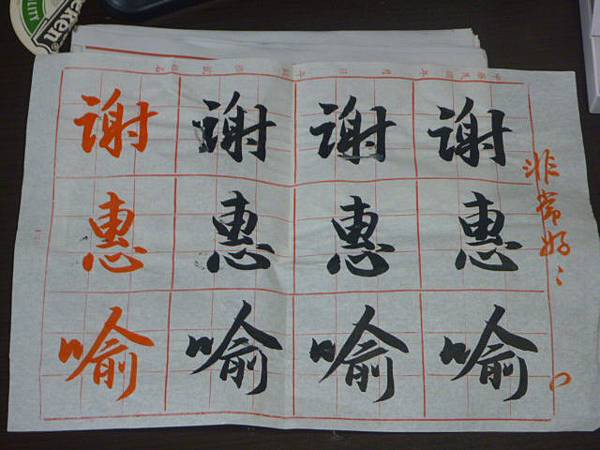 非常好〻
谢惠喻
谢惠喻
谢惠喻
谢惠喻
eken
LITY